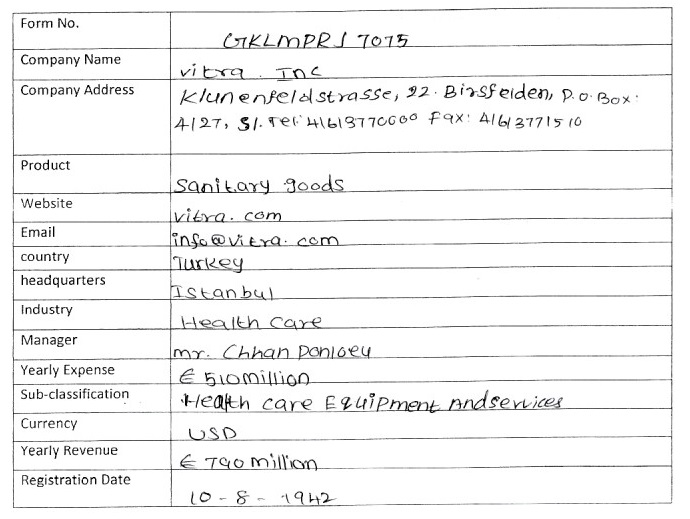 Form No.
GKLMPRS 7075
Company Name
vitra . Inc
Company Address
Klunenfeldstrasse, 22. Birsfelden, P.O. Box.
4127, Sl. Tel: 41613770000 Fax: 41613771510
Product
Sanitary goods
Website
vitra. com
Email
info@vitra. com
country
Turkey
headquarters
Istanbul
Industry
Health care
Manager
mr. Chhan
Yearly Expense
€ 510million
Sub-classification
Health care Equipment Andservices
Currency
USD
Yearly Revenue
€ 790 million
Registration Date
10 - 8 - 1942